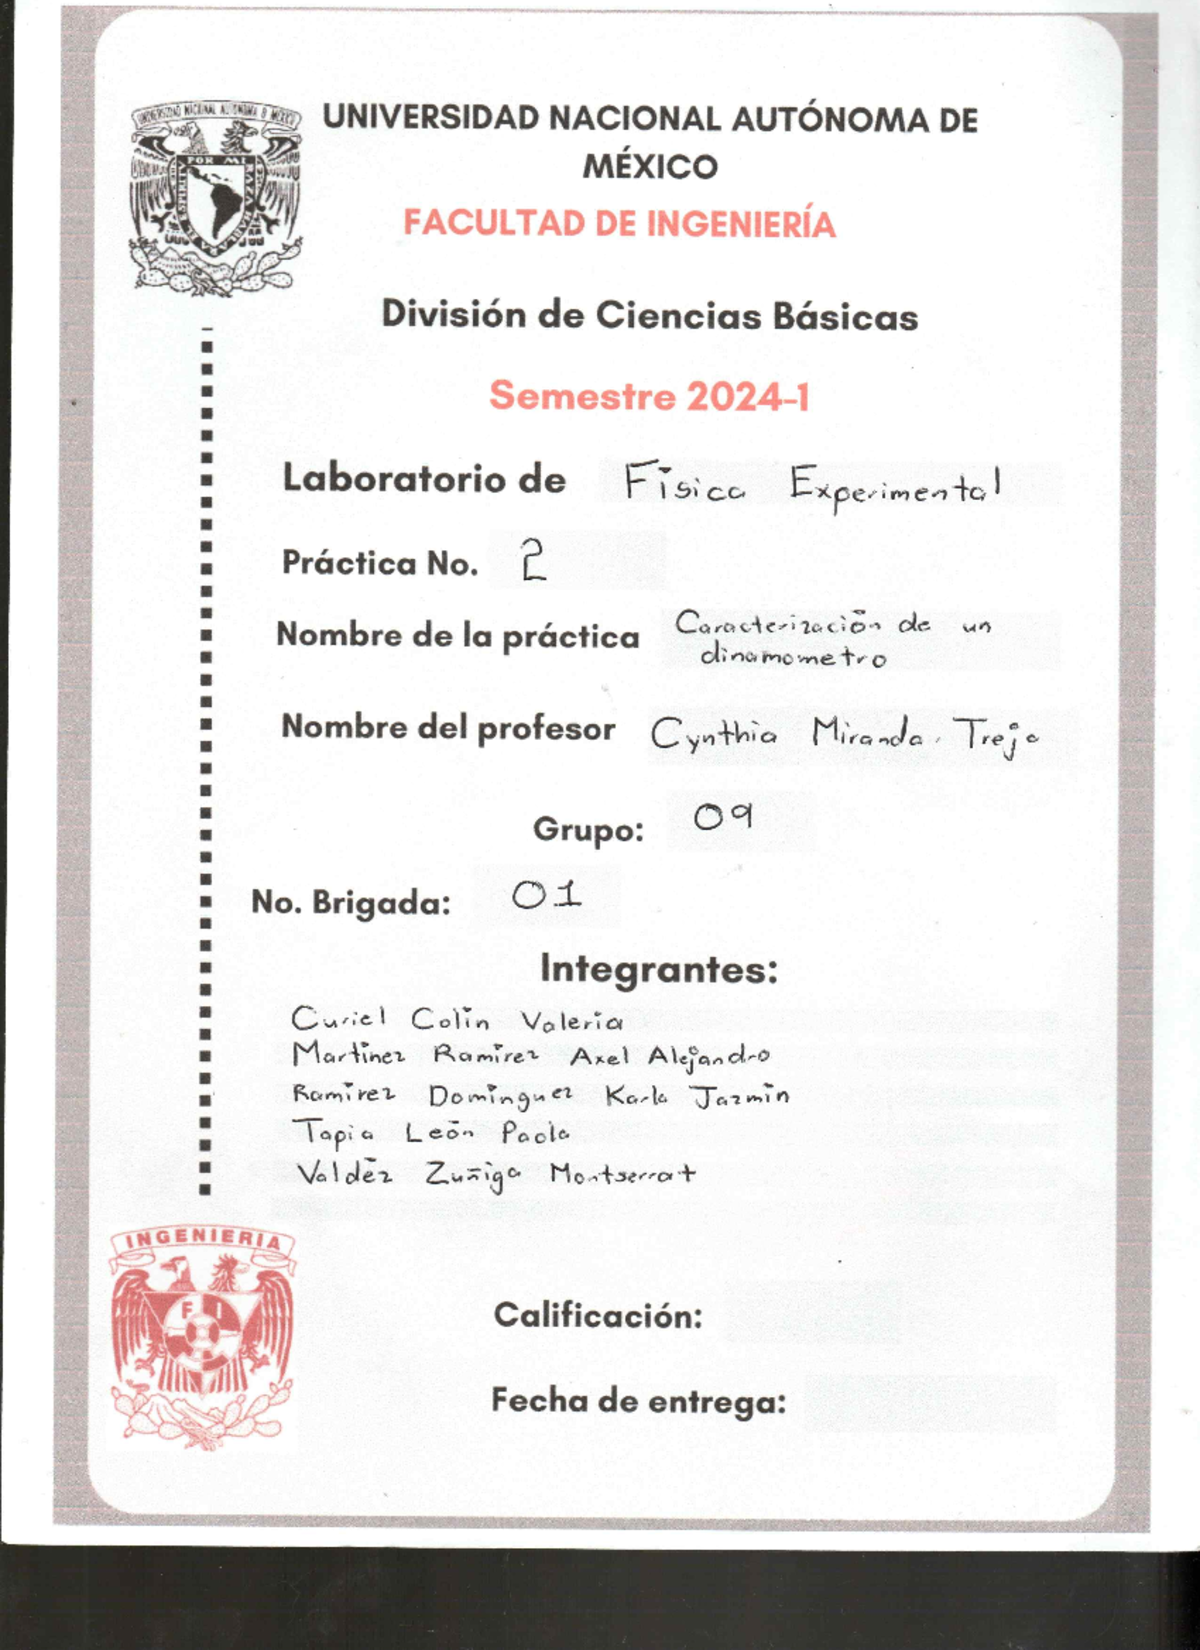 UNIVERSIDAD NACIONAL AUTÓNOMA DE
MÉXICO
FACULTAD DE INGENIERÍA
División de Ciencias Básicas
Semestre 2024-1
Laboratorio de Física Experimental
Práctica No. 2
Nombre de la práctica Caracterización de un
dinamometro
Nombre del profesor Cynthia Miranda Trejo
Grupo: 09
No. Brigada: 01
Integrantes:
Curiel Colín Valeria
Martínez Ramírez Axel Alejandro
Ramírez Domínguez Karla Jazmín
Tapia León Paola
Valdéz Zuñiga Montserrat
INGENIERIA
F I
Calificación:
Fecha de entrega: